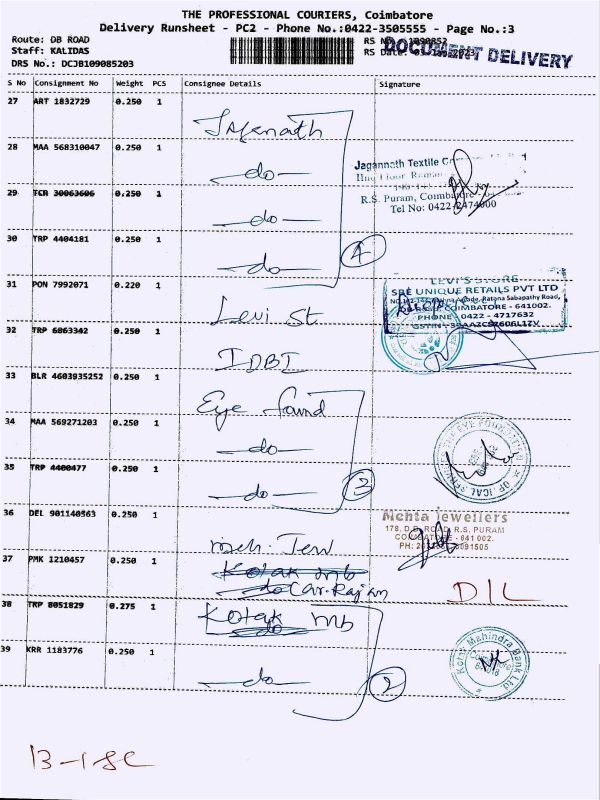 THE PROFESSIONAL COURIERS, Coimbatore
Delivery Runsheet - PC2 - Phone No.:0422-3505555 - Page No.:3
Route: DB ROAD
Staff: KALIDAS
DRS No.: DCJB109085203
RS No.
RS Date:
DOCUMENT DELIVERY
S No Consignment No Weight PCS Consignee Details Signature
27 ART 1832729 0.250 1 Jagenath
28 MAA 568310047 0.250 1 -do-
Jagannath Textile
R.S. Puram,
Tel No: 0422-2474000
29 TCR 30063606 0.250 1 -do-
30 TRP 4404181 0.250 1 -do-
4
31 PON 7992071 0.220 1 Levi St
LEVI'S STORE
SRE UNIQUE RETAILS PVT LTD
Ratona Sabapathy Road,
COIMBATORE - 641002.
PHONE: 0422 - 4717632
32 TRP 6863342 0.250 1 IDBI
33 BLR 4603935252 0.250 1 Eye found
34 MAA 569271203 0.250 1 -do-
35 TRP 4400477 0.250 1 -do-
3
36 DEL 901140563 0.250 1 meh. Jew
Mehta Jewellers
178, D.B. ROAD, R.S. PURAM
COIMBATORE - 641 002.
37 PMK 1210457 0.250 1 Kotak mb
Car. Rajan
D/L
38 TRP 8051829 0.275 1 Kotak mb
39 KRR 1183776 0.250 1 -do-
2
Kotak Mahindra Bank Ltd.